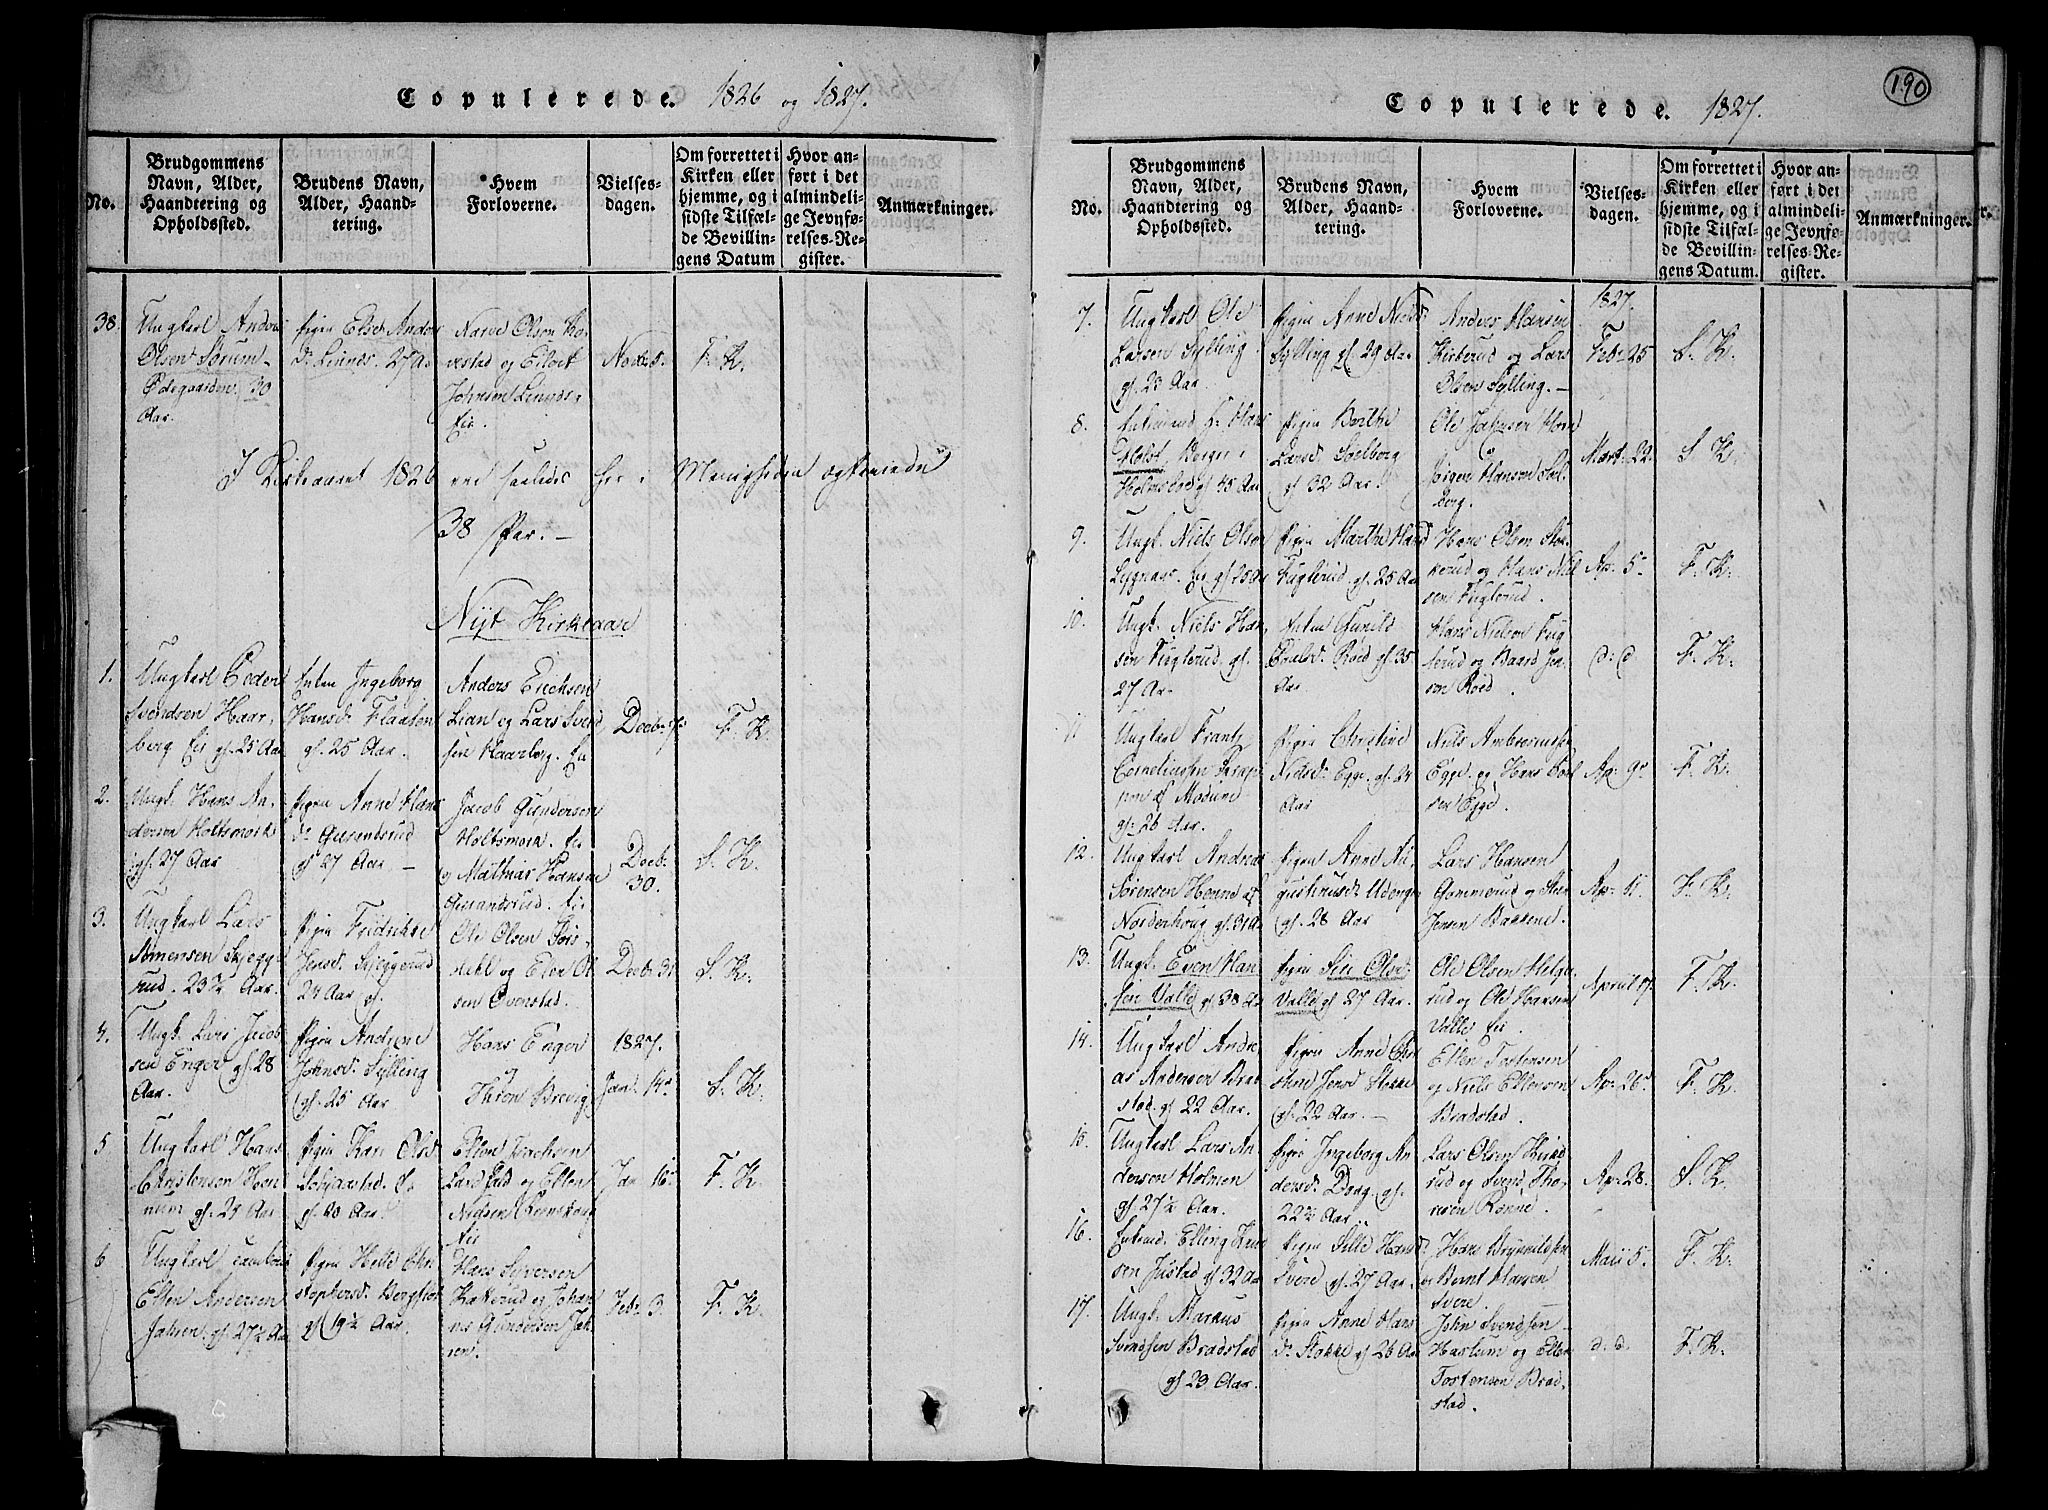 Copulerede. 1826 og 1827.
No.
Brudgommens
Navn, Alder,
Haandtering og
Opholdssted.
Brudens Navn,
Alder, Haand-
tering.
Hvem
Forloverne.
Vielses-
dagen.
Om forrettet i
Kirken eller
hjemme, og i
sidste Tilfæl-
de Bevillin-
gens Datum
Hvor an-
ført i det
almindeli-
ge Jevnfø-
relses-Re-
gister.
Anmærkninger.
38.
Ungkarl
Olsen Sørum
Ødegaarden 30
Aar.
Pigen Else Anders
d. Linnes. 27 A
Narve Olsen
og
Johnsen Linnes
eie.
F. K.
I Kirkeaaret 1826 ere saaledes her i Menigheden
38 Par. —
Nyt Kirkeaar
1.
Ungkarl Peder
Svendsen Haar-
berg Eie gl. 25 Aar
Enken Ingeborg
Hansd. Flaaten
gl. 25 Aar.
Anders Erichsen
Lian og Lars Svend
sen Haarberg. Eie
Decbr. 7.
F. K.
2.
Ungk. Hans An-
dersen Holtsmork
gl. 27 Aar
Pigen Anne Hans
d.
gl 27 Aar. —
Jacob Gundersen
Holtsmork. Eie
og Mathias Hansen
Eie
Decbr.
30.
S. K.
3.
Ungkarl Lars
Simensen Skjegge-
rud. 23½ Aar.
Pigen Fredrikke
Jensd. Skjeggerud
24 Aar gl.
Ole Olsen
og Elen Ol
sen Ovenstad.
Decbr 31
S. K.
4.
Ungk. Lars Jacob
sen Enger gl. 28
Aar.
Pigen Andrine
Johnsd. Sylling
gl. 25 Aar
Hans Enger
og
Thron Brevig
1827.
Jan. 14de
S. K.
5
Ungkarl Hans
Christensen Hen
num gl. 25 Aar
Pigen Kari Olsd
gl. 20 Aar.
og Ellen
Nielsen
Eie
Jan 16
F. K.
6
Ungkarl
Ellen Andersen
Jahren. gl. 27½ Aar
Pigen Helle Chri
stophersd.
gl 19½ Aar.
Hans Syversen
og Johan
nes Gundersen Jah
ren.
Febr. 3.
F. K.
Copulerede. 1827.
190
No.
Brudgommens
Navn, Alder,
Haandtering og
Opholdssted.
Brudens Navn,
Alder, Haand-
tering.
Hvem
Forloverne.
Vielses-
dagen.
Om forrettet i
Kirken eller
hjemme, og i
sidste Tilfæl-
de Bevillin-
gens Datum.
Hvor an-
ført i det
almindeli-
ge Jevnfø-
relses-Re-
gister.
Anmærkninger.
7.
Ungkarl Ole
Larsen Sylling
gl. 23 Aar.
Pigen Anne Nielsd.
Sylling gl. 29 Aar
Anders Hansen
Kirkerud og Lars
Olsen Sylling. —
1827.
Febr 25
S. K.
8.
Enkemand Hr Hans
Holst, Berger i
gl 45 Aar
Pigen Berthe
Larsd. Solberg
gl 32 Aar.
Ole Jahnsen Horn
Jørgen Hansen Sol
berg.
Mart. 22.
S K.
9.
Ungk. Niels Olsen
Lygnaas. Eie gl. 25 Aar
Pigen Marthe Hansd
Fuglerud. gl. 25 Aar
Hans Olsen Stok
kerud og Hans Niel
sen Fuglerud.
Ap. 5
F. K.
10.
Ungk. Niels Han-
sen Fuglerud. gl.
27 Aar
Enken Gunild
Roed gl. 35
Aar
Hans Nielsen Fug
lerud og Baard Jen-
sen Roed.
d. d
F. K.
11
Ungkarl Frantz
Corneliussen
af Modum
gl. 26 Aar.
Pigen Christine
Nielsd. Egge. gl. 24
Aar
Niels Ambrosiussen
Egge. og Hans
sen Egge.
Ap. 9
F. K.
12.
Ungkarl Andreas
Sørensen Henne af
Norderhoug gl. 31 A
Pigen Anne Au-
gustinusd.
gl. 28 Aar
Lars Hansen
Gommerud og
Jensen Bakkene.
Ap. 11.
F. K.
13.
Ungk. Even Han-
sen Valle gl 38 Aar
Pigen Siri Olsd.
Valle gl 27 Aar.
Ole Olsen Helge-
rud og Ole Hansen
Valle Eie.
April 17.
F. K.
14.
Ungkarl Andre-
as Andersen Brat-
stad. gl 22 Aar.
Pigen Anne Chri
stine Jensd Stokke
gl. 22 Aar. —
Ellen Tostensen
og Niels Ellensen
Bradstad.
Ap. 26
F. K.
15.
Ungkarl Lars An
dersen Holmen
gl. 27½ Aar.
Pigen Ingeborg An
dersd. Daag. gl.
22½ Aar
Lars Olsen
rud og Svend Tho-
resen Rønne.
Ap. 28.
S. K.
16.
Enkemd. Elling
sen Justad gl 32 Aar
Pigen Sille Hansd
Svere gl. 27 Aar.
Hans Brynildsen
og Bernt Hansen
Svere.
Maii 5.
F. K.
17.
Ungk. Marcus
Svendsen Bradstad
gl. 23 Aar.
Pigen Anne Hans
d. Stokke gl 26 Aar
John Svendsen —
Haslum og Ellen
Tostensen Brad-
stad.
d. d.
F. K.